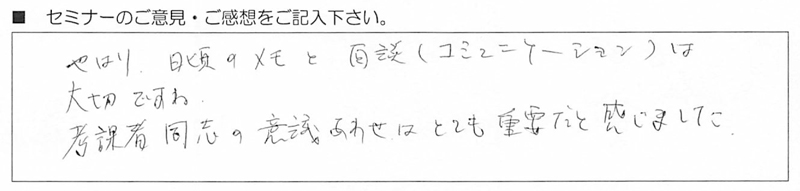 ■ セミナーのご意見・ご感想をご記入下さい。
やはり、日頃のメモと面談(コミュニケーション)は
大切ですね。
考課者同志の意識あわせはとても重要だと感じました。